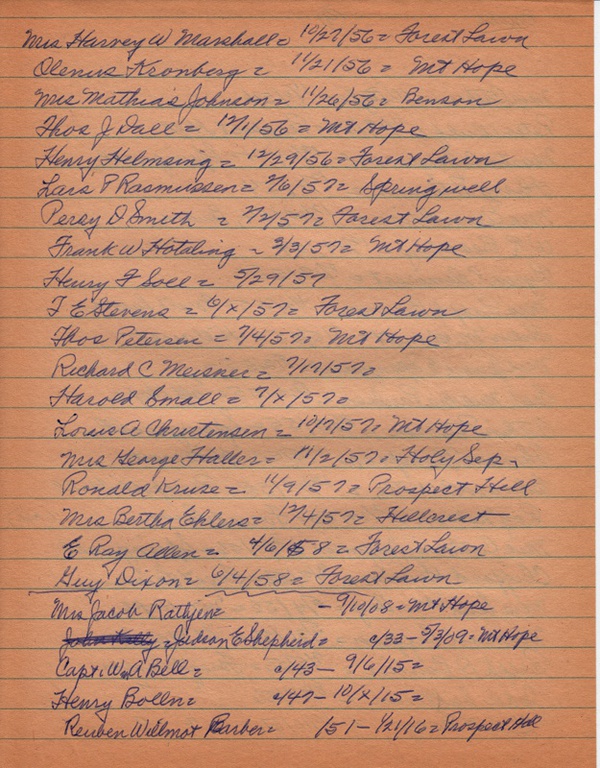 Mrs Harvey W Marshall = 10/27/56 = Forest Lawn
Olenus Kronberg = 11/21/56 = Mt Hope
Mrs Mathias Johnson = 11/26/56 = Benson
Thos J Dall = 12/1/56 = Mt Hope
Henry Helmsing = 12/29/56 = Forest Lawn
Lars P Rasmussen = 2/6/57 = Springwell
Percy D Smith = 2/2/57 = Forest Lawn
Frank W Hotaling = 3/3/57 = Mt Hope
Henry F Soll = 5/29/57
T E Stevens = 6/x/57 = Forest Lawn
Thos Petersen = 7/4/57 = Mt Hope
Richard C Meisner = 7/17/57 =
Harold Small = 7/x/57 =
Louis A Christensen = 10/7/57 = Mt Hope
Mrs George Haller = 11/2/57 = Holy Sep -
Ronald Kruse = 11/9/57 = Prospect Hill
Mrs Bertha Ehlers = 12/4/57 = Hillcrest
E Ray Allen = 4/6/58 = Forest Lawn
Guy Dixon = 6/4/58 = Forest Lawn
Mrs Jacob Rathjen = - 9/10/08 = Mt Hope
John Kelly = Judson E Shepherd = c/33 - 5/3/09 = Mt Hope
Capt. W A Bell = c/43 - 9/6/15 =
Henry Bolln = c/47 - 10/x/15 =
Reuben Wilmot Barber = /51 - 1/21/16 = Prospect Hill